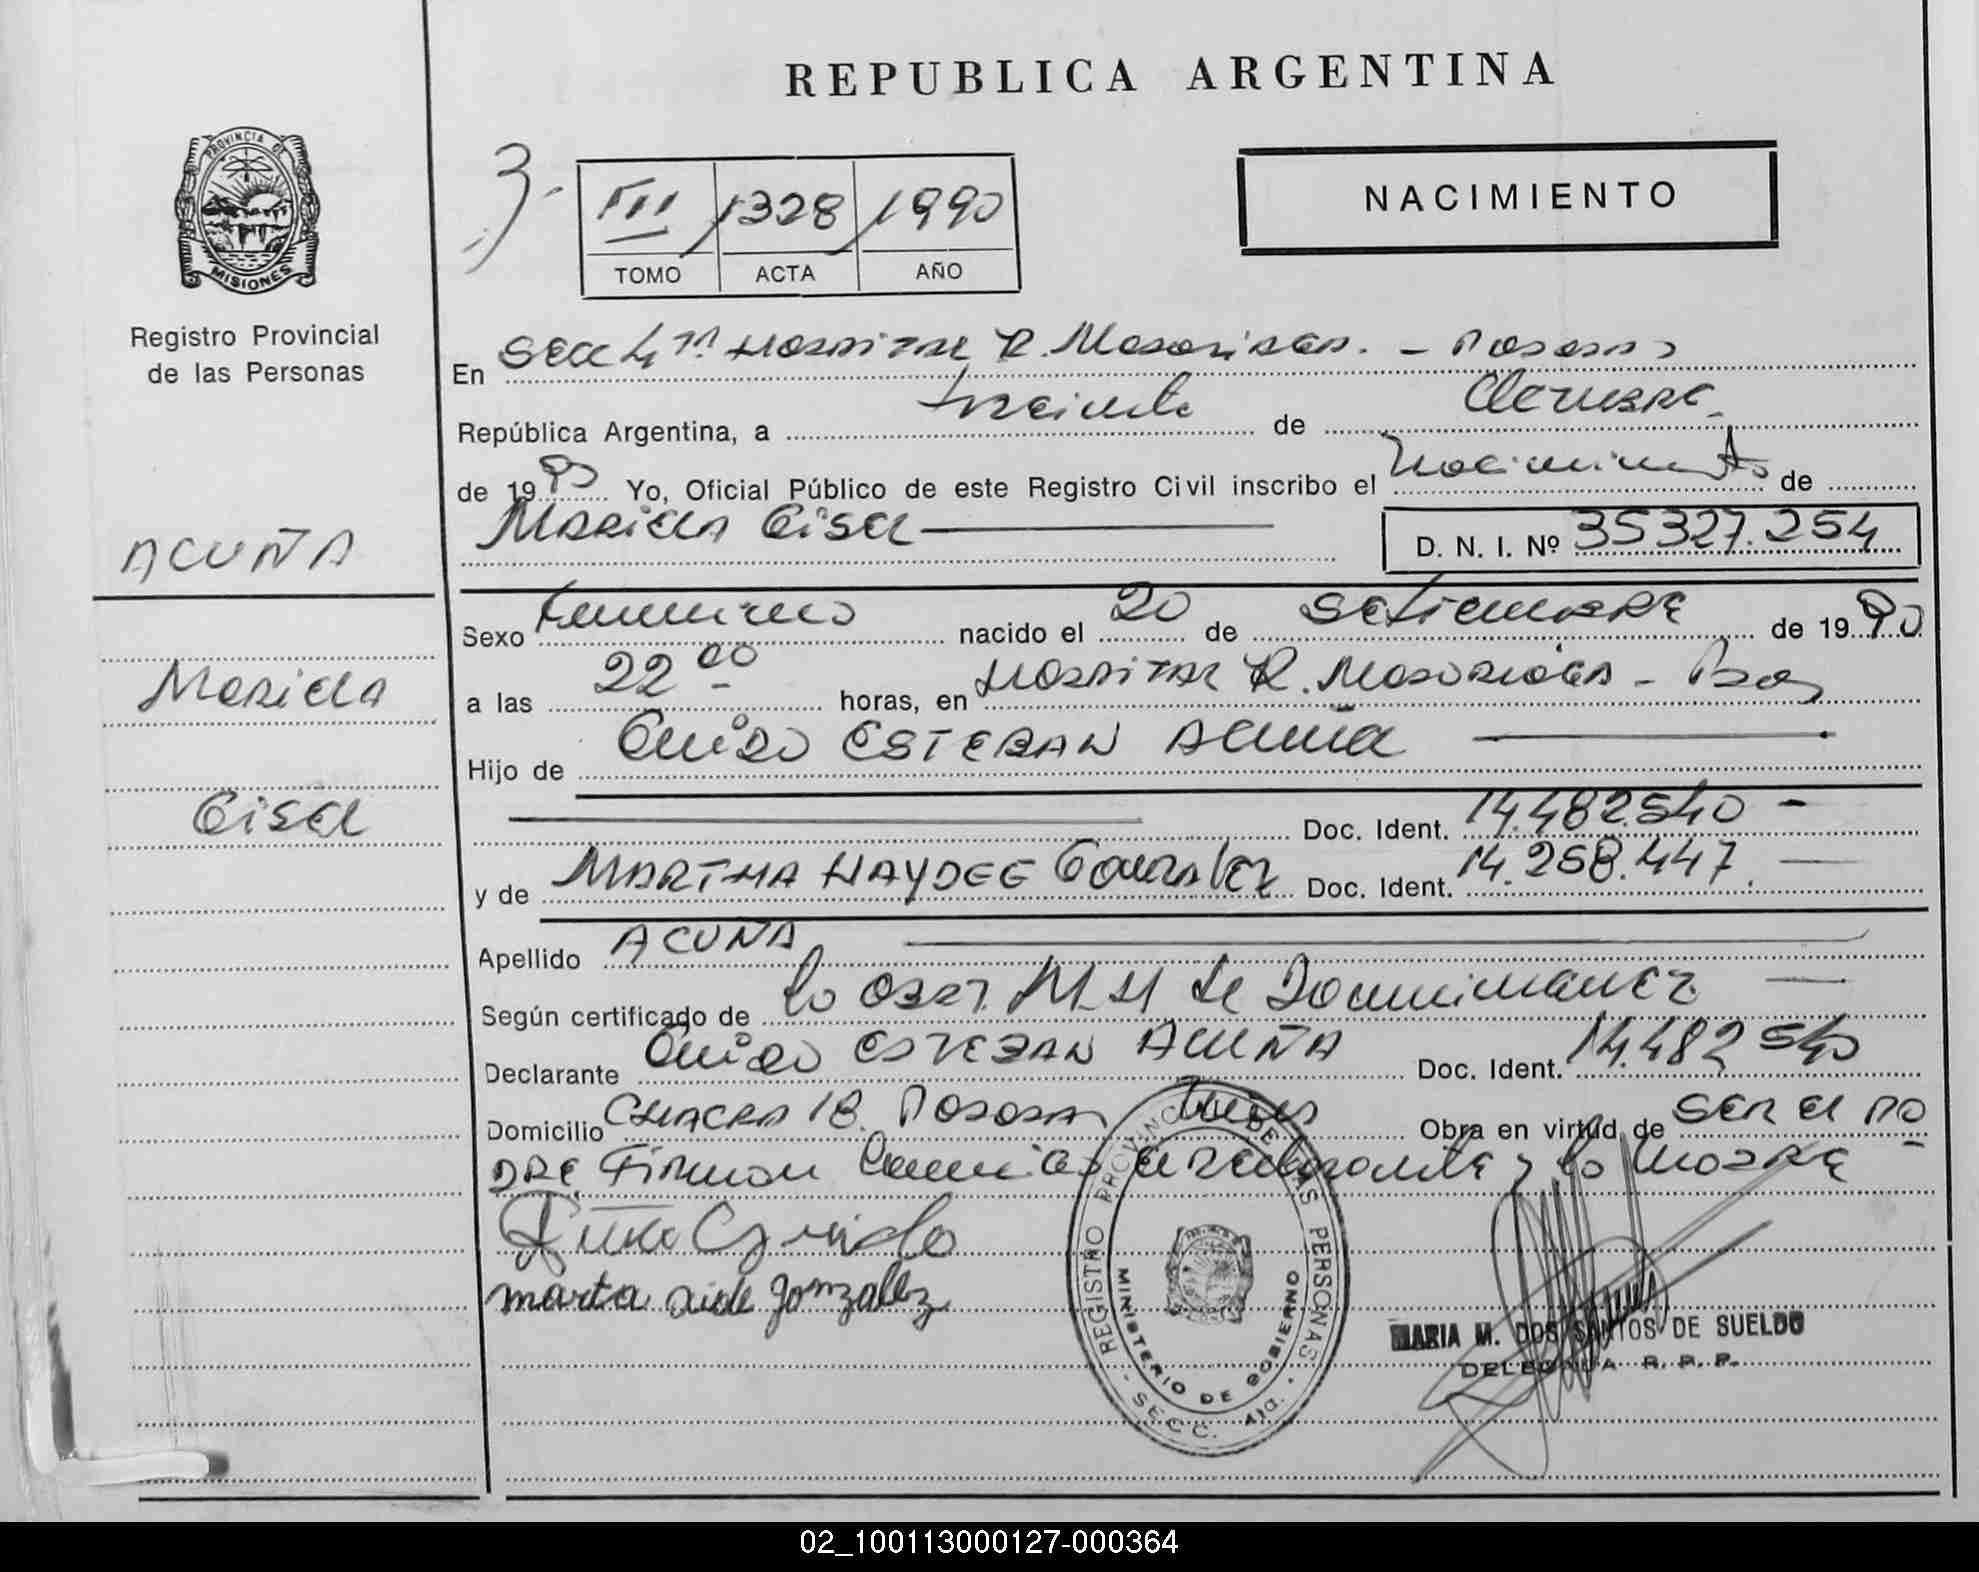 REPUBLICA ARGENTINA
PROVINCIA DE
MISIONES
Registro Provincial
de las Personas
3
III 1328 1990
TOMO ACTA AÑO
NACIMIENTO
En Secc 4ta Hospital R. Madariaga. - Posadas
República Argentina, a treinta de Octubre
de 1990 Yo, Oficial Público de este Registro Civil inscribo el Nacimiento de
Mariela Gisel
D. N. I. Nº 35327.254
ACUÑA
Mariela
Gisel
Sexo Femenino nacido el 20 de Setiembre de 1990
a las 22 00 horas, en Hospital R. Madariaga - Pdas
Hijo de Guido ESTEBAN Acuña
Doc. Ident. 14.482.540 -
y de MARTHA HAYDEE Gonzalez Doc. Ident. 14.258.447.
Apellido ACUÑA
Según certificado de la Obst. M. H de
Declarante Guido ESTEBAN ACUÑA Doc. Ident. 14.482 540
Domicilio CHACRA 18. Posadas Mnes Obra en virtud de ser el PA
DRE Firman conmigo el declarante y la Madre
Acuña Guido
marta aide gonzalez
REGISTRO PROVINCIAL DE LAS PERSONAS
MINISTERIO DE GOBIERNO
- SECC. 4ta. -
MARIA M. DOS SANTOS DE SUELDO
DELEGADA R. P. P.
02_100113000127-000364